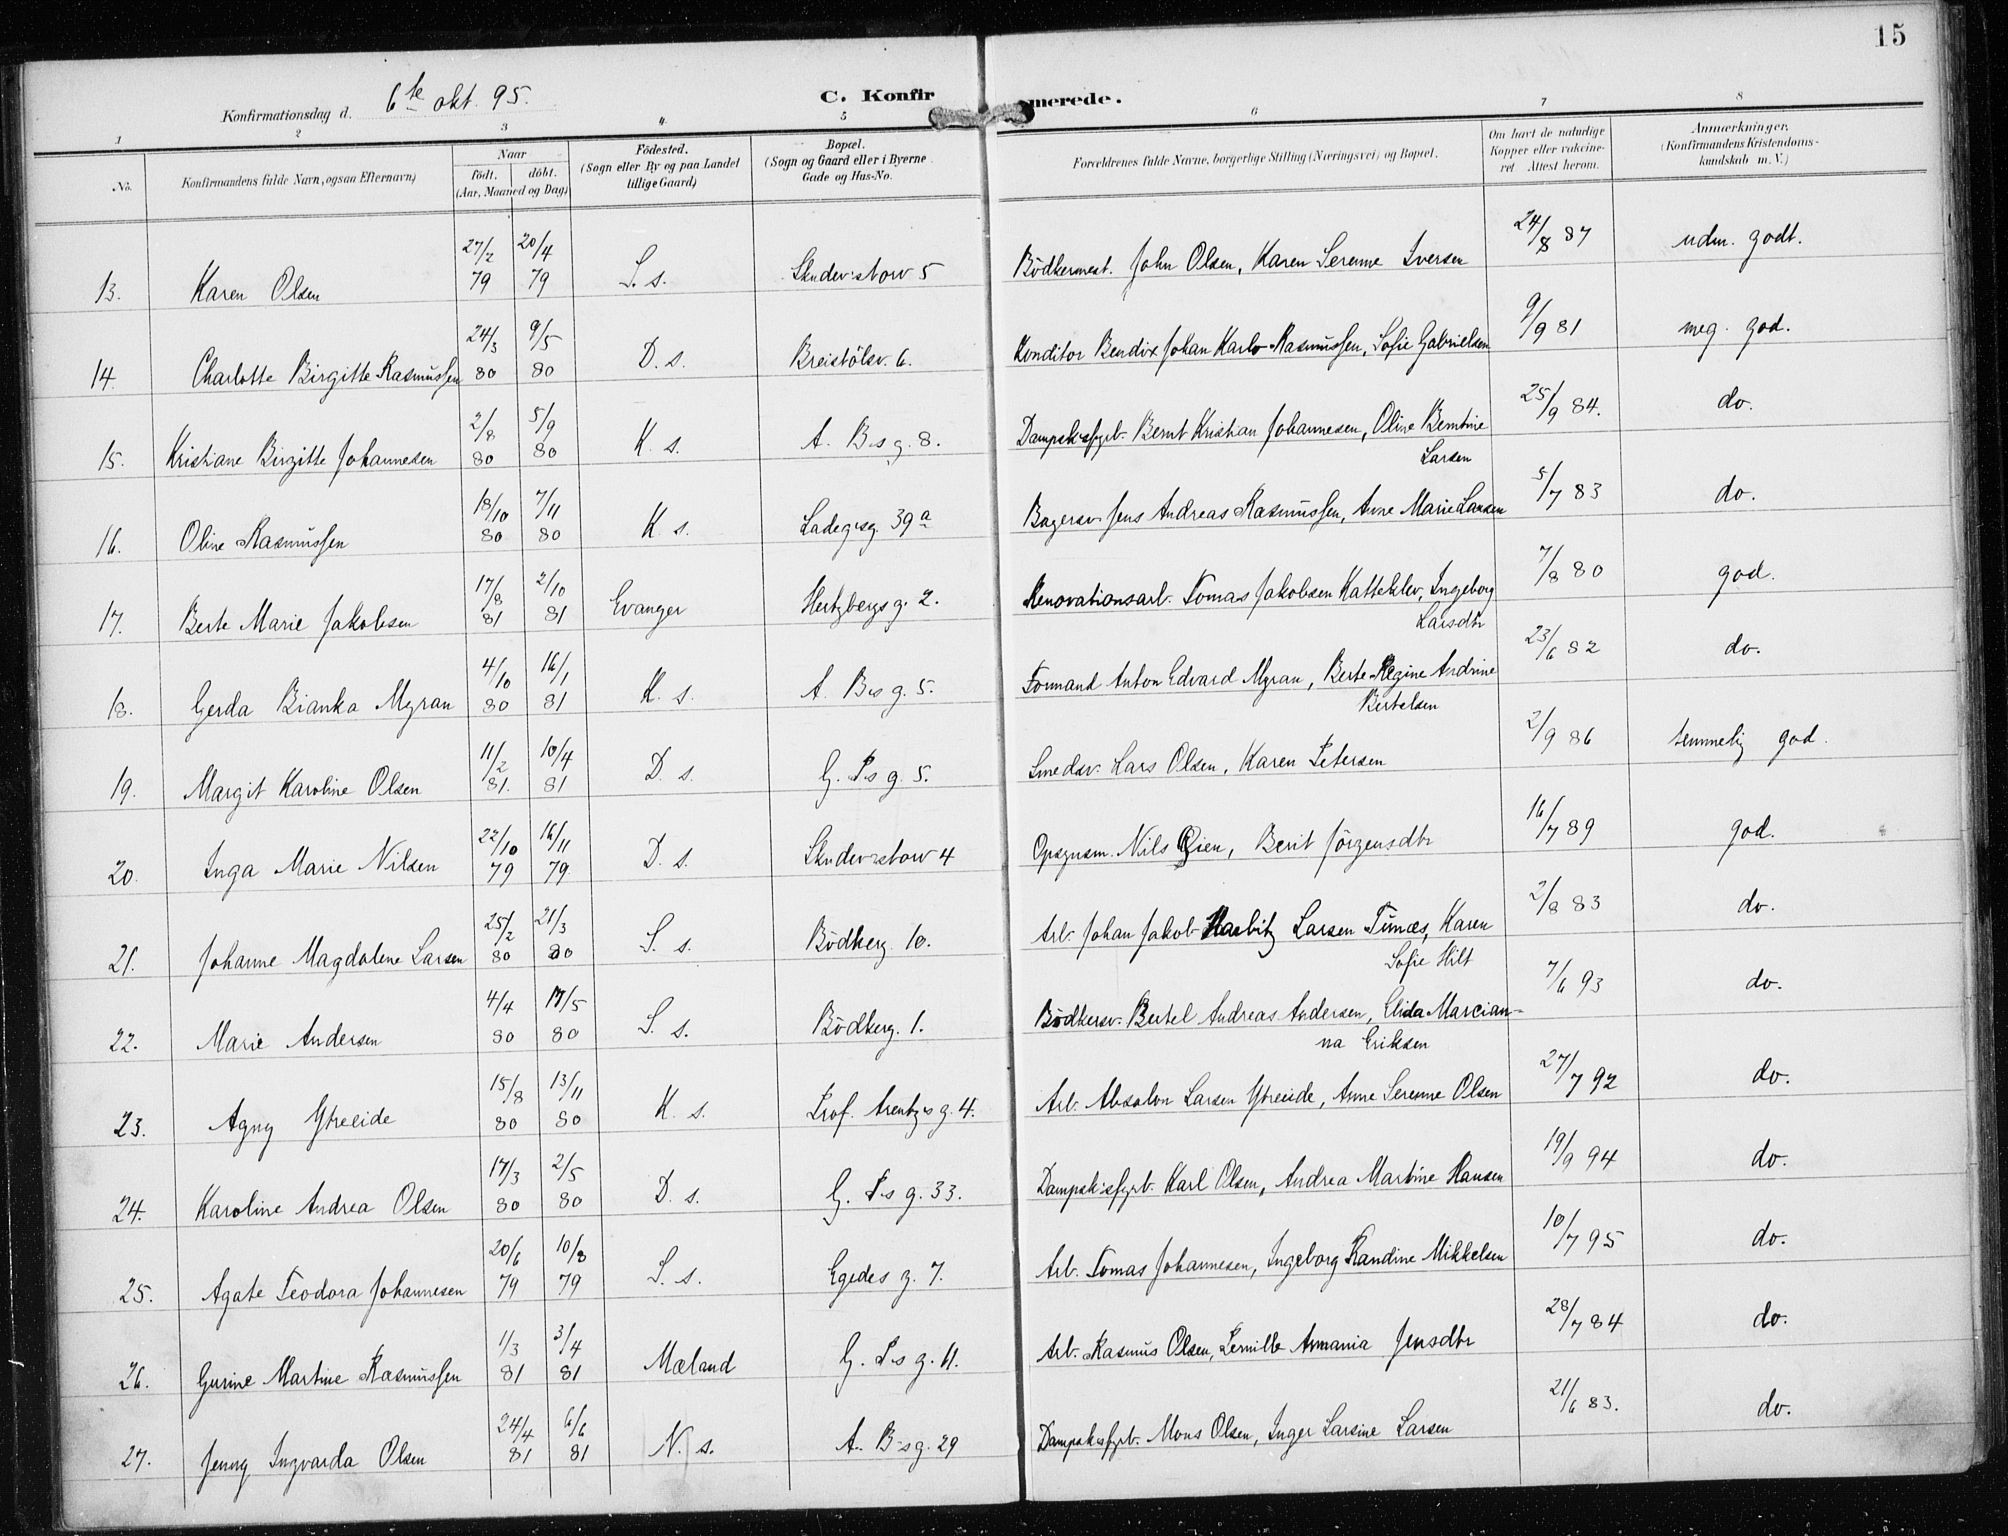 15
Konfirmationsdag d. 6te okt. 95.
C. Konfirmerede.
1 2 3 4. 5 6 7 8
No. Konfirmandens fulde Navn, ogsaa Efternavn. Naar født. døbt. (Aar, Maaned og Dag) Fødested. (Sogn eller By og paa Landet tillige Gaard.) Bopæl. (Sogn og Gaard eller i Byerne Gade og Hus-No. Forældrenes fulde Navne, borgerlige Stilling (Næringsvei) og Bopæl. Om havt de naturlige Kopper eller vaccineret Attest herom. Anmærkninger. (Konfirmandens Kristendomskundskab m. V.)
13. Karen Olsen 27/2 79 20/4 79 S. s. Skudevstorv 5 Bödkermest. John Olsen, Karen Serenne Iversen 24/8 87 udm. godt.
14. Charlotte Birgitte Rasmussen 24/3 80 9/5 80 D. s. Breistölsv. 6. Konditor Bendix Johan Karlo Rasmussen, Sofie Gabrielsen 9/9 81 meg. god.
15. Kristiane Birgitte Johannesen 2/8 80 5/9 80 K. s. A. B.s g. 8. Dampsk.sfyrb. Bernt Kristian Johannesen, Oline Berntine
Larsen 25/9 84. do.
16. Oline Rasmussen 18/10 80 7/11 80 K. s. Ladeg.sg. 39a Bagersv. Jens Andreas Rasmussen, Anne Marie Larsen 5/7 83 do.
17. Berte Marie Jakobsen 17/8 81 2/10 81 Evanger Hertzbergs g. 2. Renovationsarb. Tomas Jakobsen Katteklev, Ingeborg
Larsdtr 7/8 80 god.
18. Gerda Bianka Myran 4/10 80 16/1 81 K. s. A. B.s g. 5. Formand Anton Edvard Myran, Berte Regine Andrine
Bertelsen 23/6 82 do.
19. Margit Karoline Olsen 11/2 81. 10/4 81 D. s. G. P.s g. 5. Smedsv. Lars Olsen, Karen Petersen 2/9 86 temmelig god.
20. Inga Marie Nilsen 22/10 79 16/11 79. D. s. Skudevstorv 4 Opsynsm. Nils Gjien, Berit Jörgensdtr 16/7 89 god.
21. Johanne Magdalene Larsen 25/2 80 21/3 80 S. s. Bödkerg. 10. Arb. Johan Jakob Harbitz Larsen Tunæs, Karen
Sofie Hilt 2/8 83 do.
22. Marie Andersen 4/4 80 17/5 80 S. s. Bödkerg. 1. Bödkersv. Bertel Andreas Andersen, Elida Marcian-
na Eriksen 7/6 93 do.
23. Agny Ytreeide 15/8 80 13/11 80 K. s. Prof. Arentz.s g. 4. Arb. Absalon Larsen Ytreeide, Anne Serenne Olsen 27/7 92 do.
24. Karoline Andrea Olsen 17/3 80 2/5 80 D. s. G. P.s g. 33. Dampsk.sfyrb. Karl Olsen, Andrea Martine Hansen 19/9 94 do.
25. Agate Teodora Johannesen 20/6 79 10/8 79 S. s. Egedes g. 7. Arb. Tomas Johannesen, Ingeborg Randine Mikkelsen 10/7 95 do.
26. Gurine Martine Rasmussen 1/3 81 3/4 81 Mæland G. P.s g. 11. Arb. Rasmus Olsen, Pernille Armania Jensdtr 28/7 84 do.
27. Jenny Ingvarda Olsen 24/4 81 6/6 81 N. s. A. B.s g. 29 Dampsk.sfyrb. Mons Olsen, Inger Larsine Larsen 21/6 83. do.